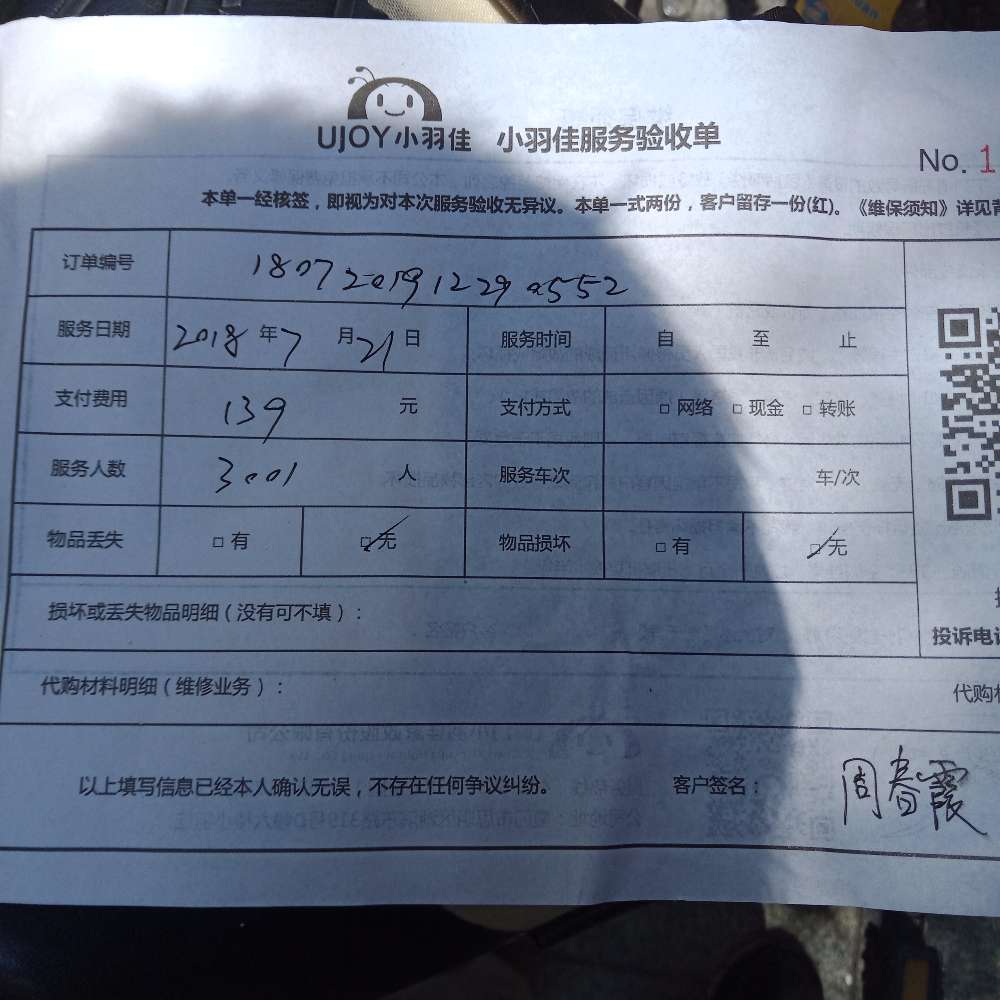 UJOY小羽佳 小羽佳服务验收单
No. 1
本单一经核签，即视为对本次服务验收无异议。本单一式两份，客户留存一份(红)。《维保须知》详见背
订单编号 1807201912290552
服务日期 2018 年 7 月 21 日 服务时间 自 至 止
支付费用 139 元 支付方式 □ 网络 □ 现金 □ 转账
服务人数 3001 人 服务车次 车/次
物品丢失 □ 有 □ 无 物品损坏 □ 有 □ 无
损坏或丢失物品明细（没有可不填）：
投诉电
代购材料明细（维修业务）： 代购
以上填写信息已经本人确认无误，不存在任何争议纠纷。 客户签名： 周春霞